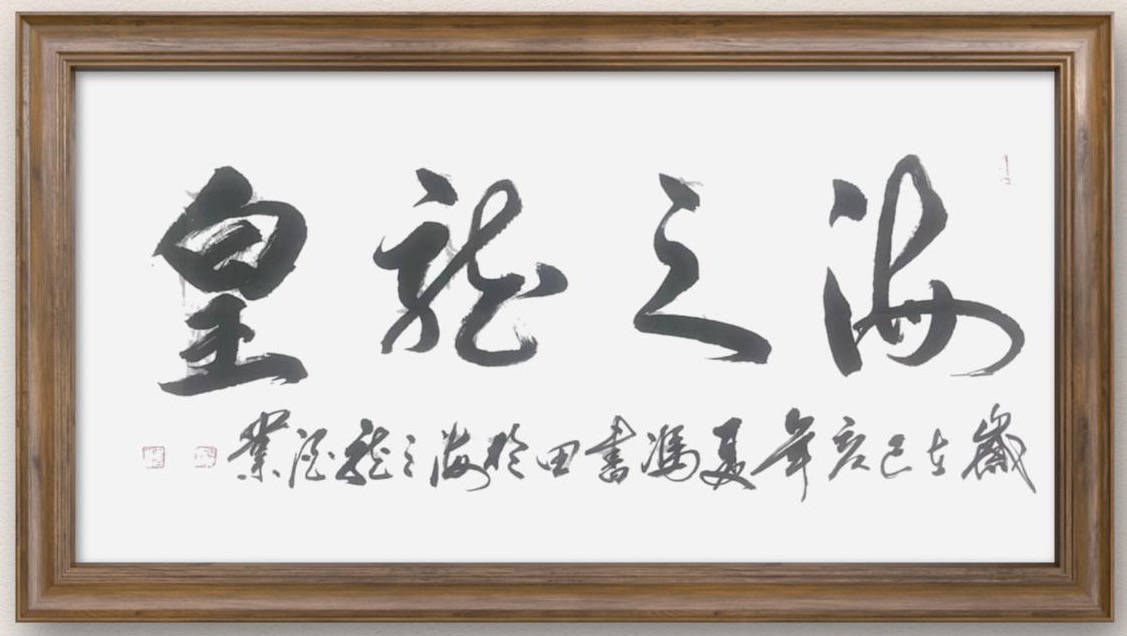 海之龍皇
歲在己亥年夏馮書田於海之龍酒業